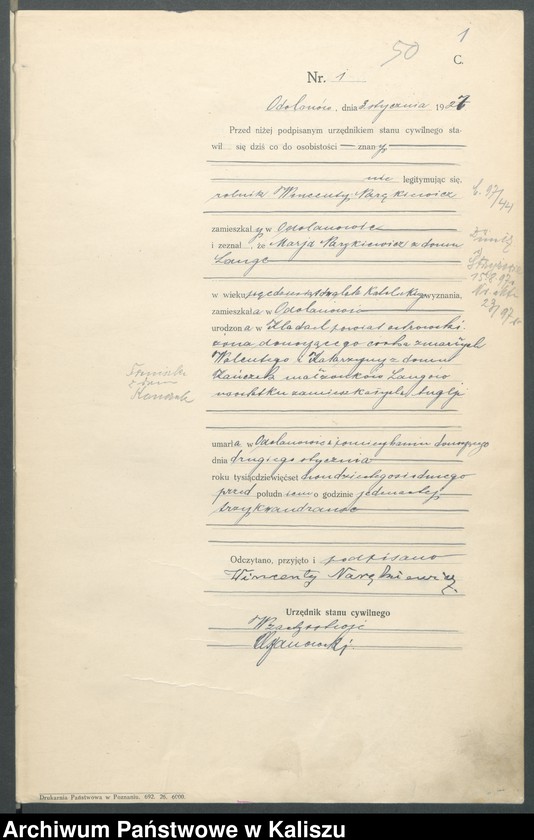 1
50
C.
Nr. 1
Odolanów, dnia 2 stycznia 1927
Przed niżej podpisanym urzędnikiem stanu cywilnego sta-
wił się dziś co do osobistości znany
nie legitymując się,
rolnik Wincenty Narękiewicz
zamieszkały w Odolanowie
i zeznał, że Marja Narękiewicz z domu
Lange
w wieku lat katolickiego wyznania,
zamieszkała w Odolanowie
urodzona w powiat ostrowski,
żona donoszącego córka zmarłych
Walentego i Katarzyny z domu
małżonków Langów
zamieszkałych tegoż
umarła w Odolanowie w pomieszkaniu donoszącego
dnia drugiego stycznia
roku tysiącdziewięćset dwudziestego siódmego
przed południem o godzinie jedenastej
trzy kwadranse
Odczytano, przyjęto i podpisano
Wincenty Narękiewicz
Urzędnik stanu cywilnego
W zastępstwie
Drukarnia Państwowa w Poznaniu. 692. 26. 6000.
Archiwum Państwowe w Kaliszu